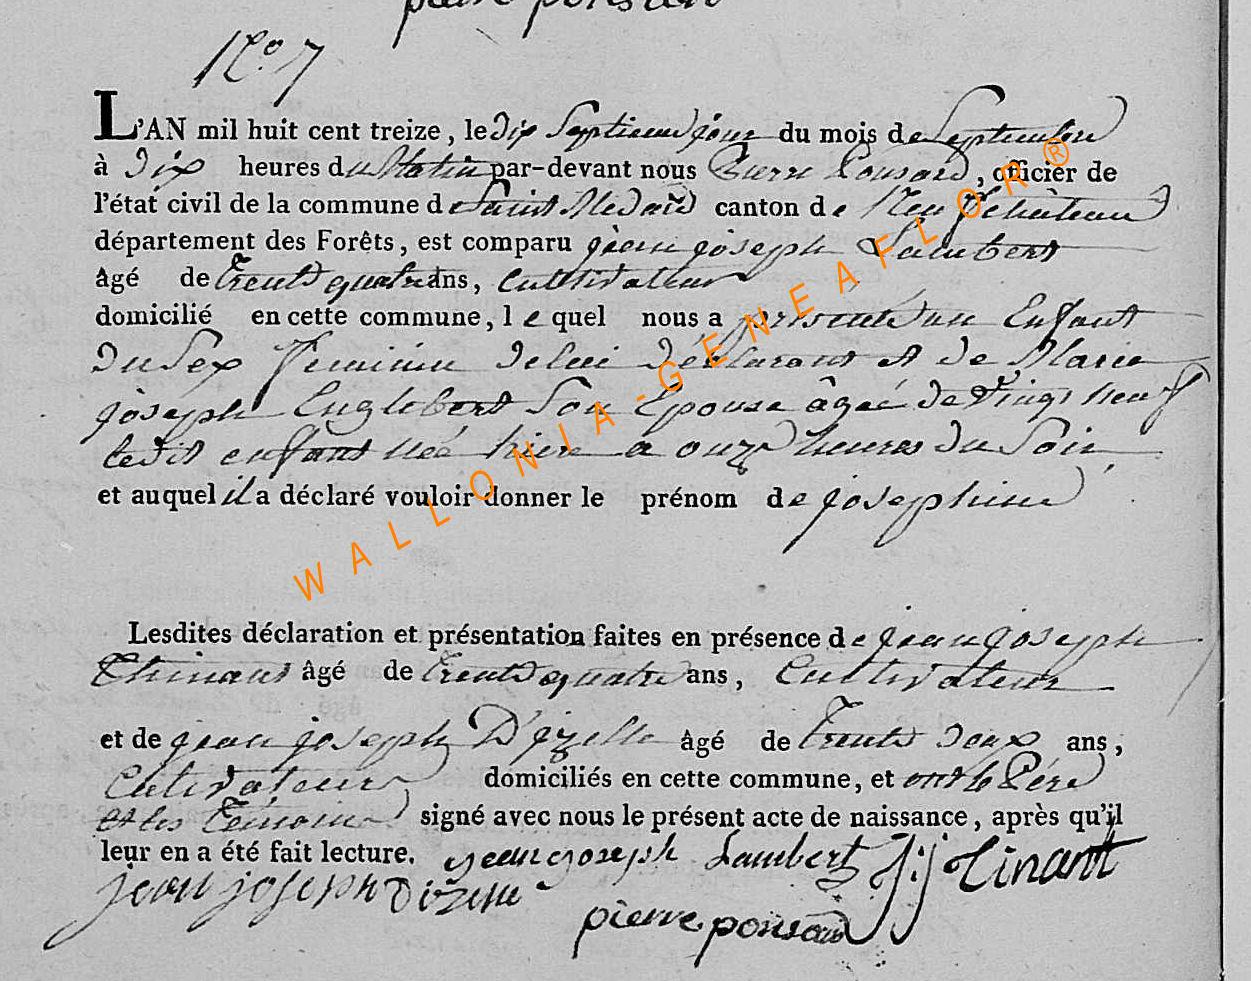 pierre ponsard
N.o 7
L'AN mil huit cent treize, le dix Septieme jour du mois de Septembre
à Dix heures du Matin par-devant nous Pierre Ponsard, officier de
l'état civil de la commune de Saint Medard canton de Neufchateau
département des Forêts, est comparu jean joseph Lambert
âgé de Trente quatre ans, Cultivateur
domicilié en cette commune, lequel nous a presenté un Enfant
du Sex Feminin de lui Déclarant et de Marie
joseph Englebert Son Epouse âgée de Vingt neuf
ledit enfant née hier a onze heures du Soir
et auquel il a déclaré vouloir donner le prénom de josephine
Lesdites déclaration et présentation faites en présence de jean joseph
Thinant âgé de trente quatre ans, Cultivateur
et de jean joseph D'izelle âgé de Trente deux ans,
Cultivateur domiciliés en cette commune, et ont le Pére
et les Témoin signé avec nous le présent acte de naissance, après qu'il
leur en a été fait lecture. jean joseph Lambert J:j Tinant
jean joseph Dizelle
pierre ponsard
WALLONIA-GENEAFLOR®